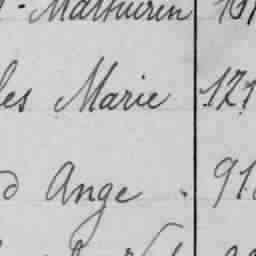 Mathurin
les Marie 121
d Ange . 91